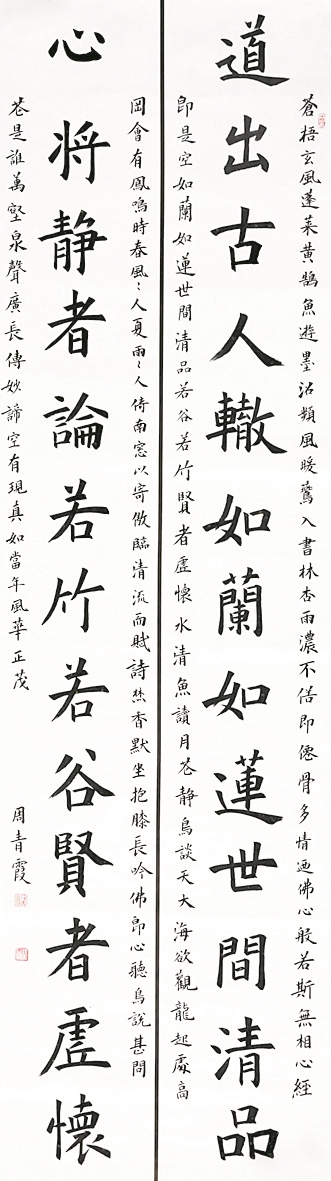 蒼梧玄風蓬萊黄鵠魚遊墨沼頻風暖鶯入書林杏雨濃不俗即僊骨多情迺佛心般若斯無相心經
道出古人轍如蘭如蓮世間清品
即是空如蘭如蓮世間清品若谷若竹賢者虛懷水清魚讀月花静鳥談天大海欲觀龍起處高
岡會有鳳鳴時春風〻人夏雨〻人倚南窓以寄傲臨清流而賦詩焚香默坐抱膝長吟佛即心聽鳥說甚問
心將静者論若竹若谷賢者虛懷
花是誰萬壑泉聲廣長傳妙諦空有現真如當年風華正茂
周青霞